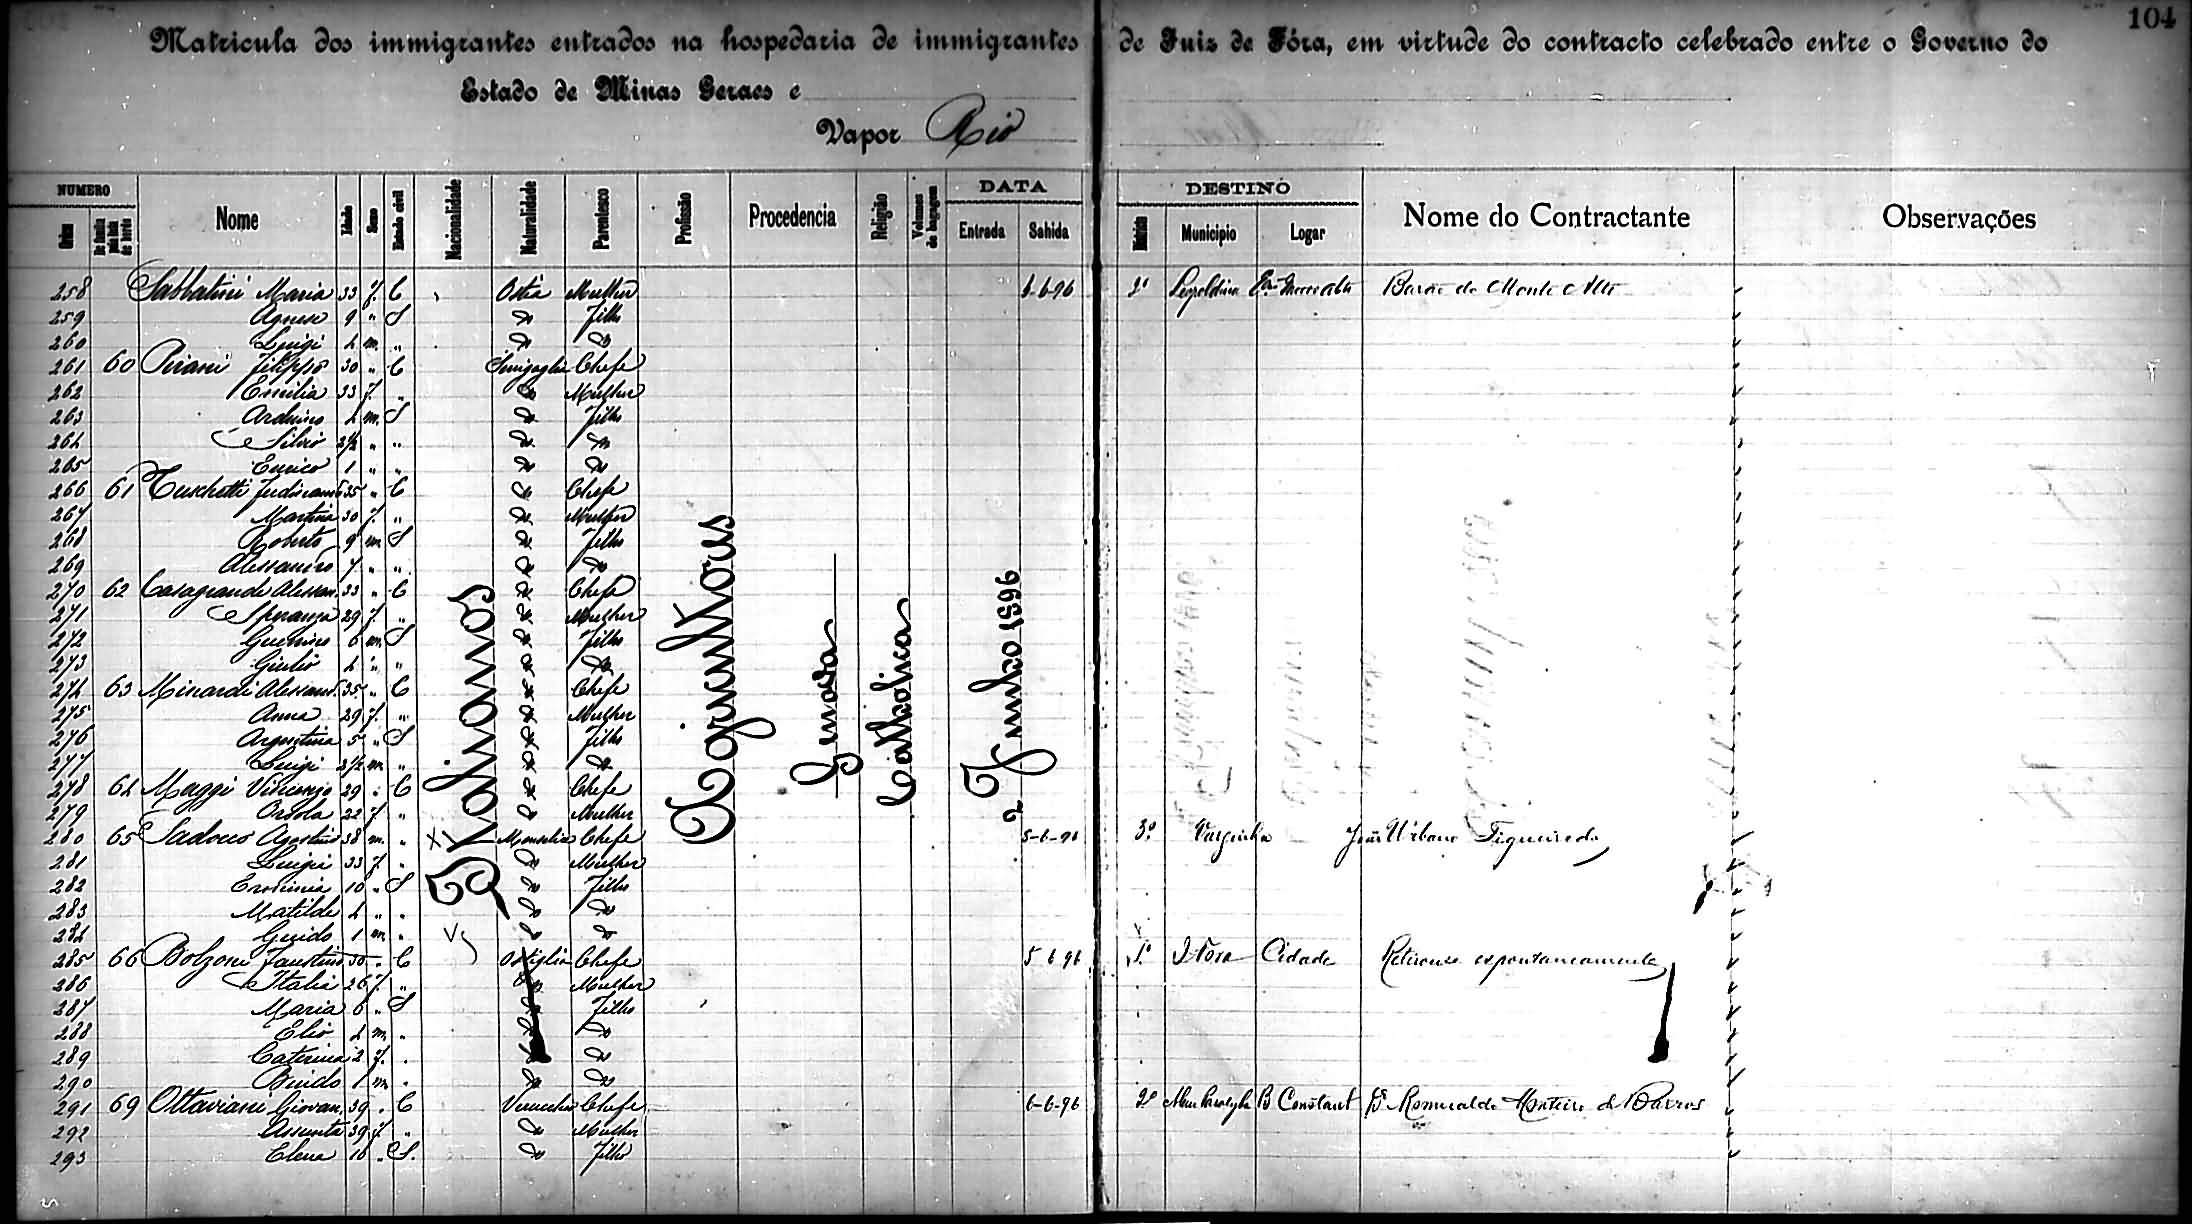 104
Matricula dos immigrantes entrados na hospedaria de immigrantes de Juiz de Fóra, em virtude do contracto celebrado entre o Governo do
Estado de Minas Geraes e
Vapor Rio
NUMERO Nome Idade Sexo Estado civil Nacionalidade Naturalidade Parentesco Profissão Procedencia Religião Volumes de bagagem DATA DESTINO Nome do Contractante Observações
Ordem De familia Entrada Sahida Municipio Logar
Italianos Agricultores Genova Catholica 2 Junho 1896
258 Sabbatini Maria 33 f. C Ostia Mulher 6-6-96 2º Leopoldina Barão de Monte Alto
259 Agnese 9 " S do Filho
260 Luigi 4 m. " do do
261 60 Pirani Filippo 30 " C Sinigaglia Chefe
262 Emilia 33 f. " do Mulher
263 Arduino 4 m. S do Filho
264 Silvio 2½ " " do do
265 Enrico 1 " " do do
266 61 Tuschetti 35 " C do Chefe
267 Martina 30 f. " do Mulher
268 Roberto 9 m S do Filho
269 Alessandro 7 " " do do
270 62 Casagrande Alessan. 33 " C do Chefe
271 Speranza 29 f. " do Mulher
272 Guerrino 6 m. S do Filho
273 Giulio 4 " " do do
274 63 Minardi Alessand. 35 " C do Chefe
275 Anna 29 f. " do Mulher
276 Argentina 5 " S do Filho
277 Luigi 2½ m. " do do
278 64 Maggi Vincenzo 29 " C do Chefe
279 Orsola 22 f. " do Mulher
280 65 Sadocco Agostino 38 m. " X Monselice Chefe 5-6-96 3º Varginha João Urbano Figueiredo
281 Luigia 33 f. " do Mulher
282 Erominia 10 " S do Filho
283 Matilde 4 " " do do
284 Guido 1 m " do do
285 66 Bolzoni Faustino 30 " C Ostiglia Chefe 5 6 96 1º J. Fora Cidade Retirou-se espontaneamente
286 Italia 26 f. " do Mulher
287 Maria 6 " S do Filho
288 Elio 4 m. " do do
289 Caterina 2 f. " do do
290 Guido 1 m " do do
291 69 Ottaviani Giovan. 39 " C Verucchio Chefe 6-6-96 2º B Constant Dr. Romualdo Monteiro de Barros
292 Assunta 39 f. " do Mulher
293 Elena 10 " S. do Filho